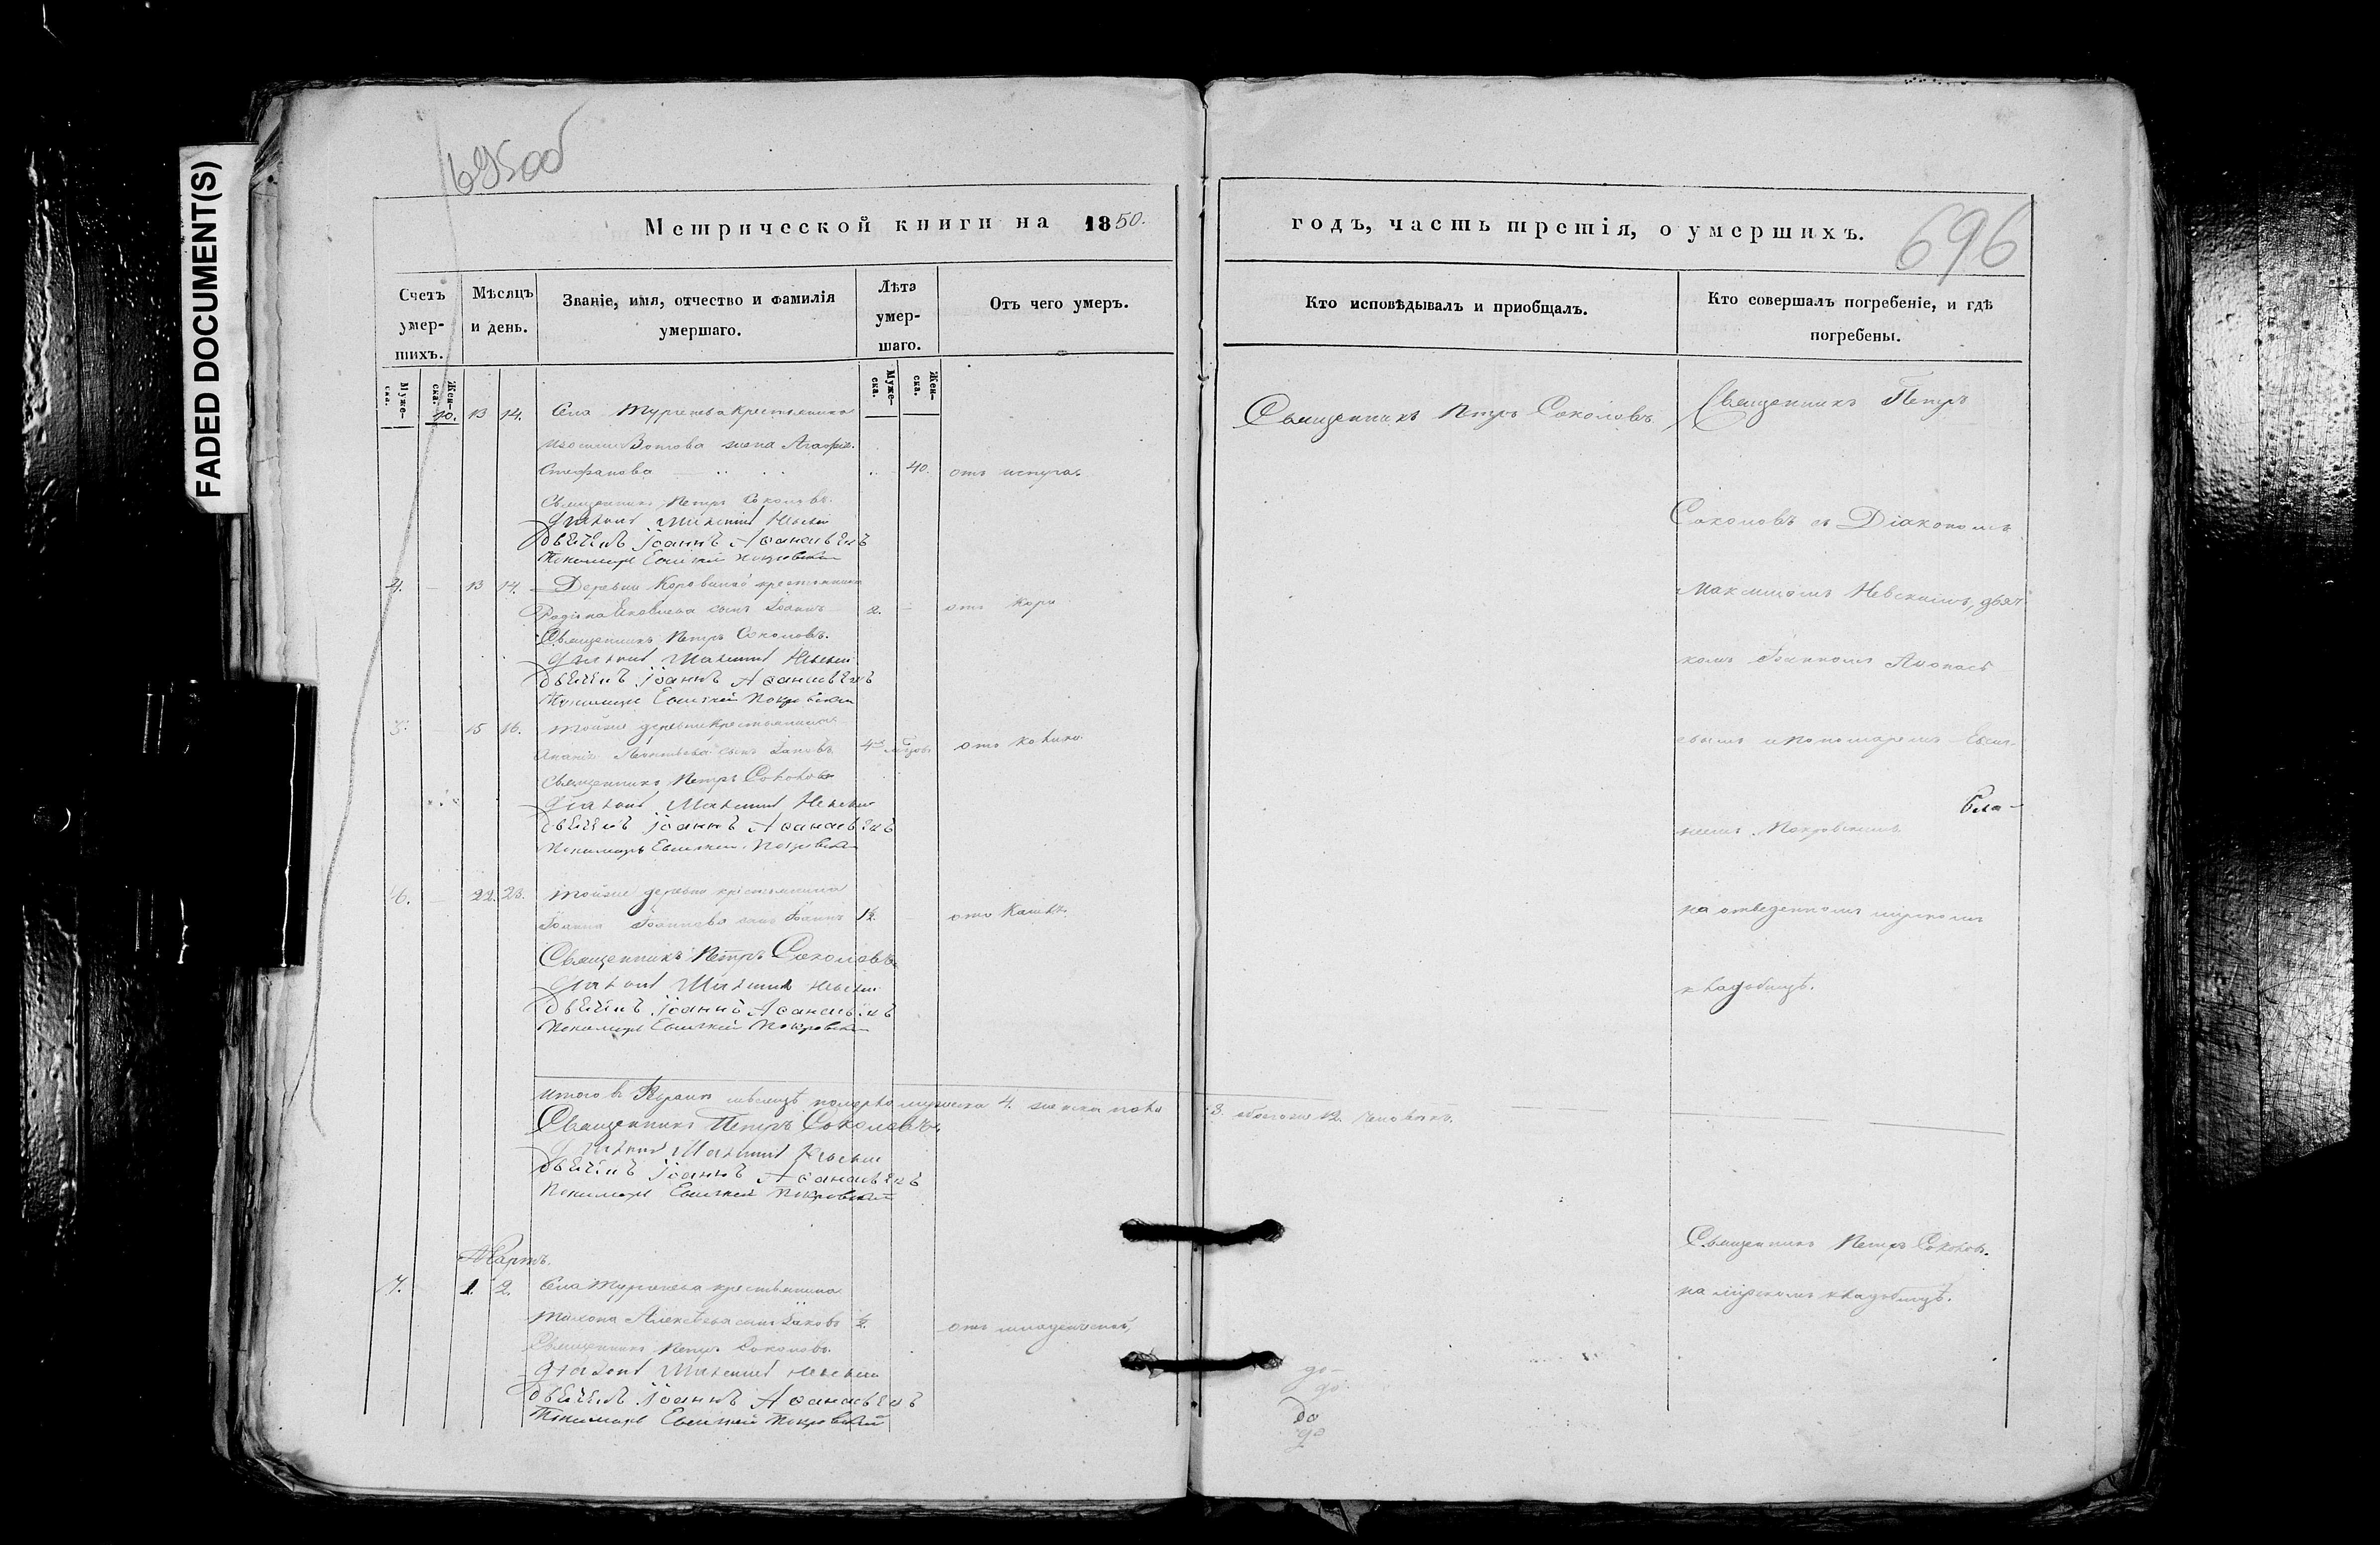 FADED DOCUMENT(S)
695об
Метрической книги на 1850.
Счетъ умер-шихъ.
Мѣсяцъ и день.
Званіе, имя, отчество и фамилія умершаго.
Лѣта умер-шаго.
Отъ чего умеръ.
Муже-ска.
Жен-ска.
Муже-ска.
Жен-ска.
10. 13 14. Села Тургенева крестьянина
Зотова жена Агафія
Стефанова 40. отъ испуга.
Священникъ Петръ Соколовъ.
Діаконъ Максимъ Невскій
Дьячекъ Іоаннъ Аѳанасьевъ
Пономарь Евсигній Покровскій
4. 13 14. Деревни крестьянина
Родіона Яковлева сынъ Іоаннъ 2. отъ кори
Священникъ Петръ Соколовъ.
Діаконъ Максимъ Невскій
Дьячекъ Іоаннъ Аѳанасьевъ
Пономарь Евсигній Покровскій
5. 15 16. Тойже деревни крестьянина
Ананіи Леонтьева сынъ Іаковъ 4хъ мѣсяцовъ отъ
Священникъ Петръ Соколовъ
Діаконъ Максимъ Невскій
Дьячекъ Іоаннъ Аѳанасьевъ
Пономарь Евсигній Покровскій
6. 22. 23. Тойже деревни крестьянина
Іоанна Іоаннова сынъ Іоаннъ 1½. отъ кашля.
Священникъ Петръ Соколовъ
Діаконъ Максимъ Невскій
Дьячекъ Іоаннъ Аѳанасьевъ
Пономарь Евсигній Покровскій
Итого въ мѣсяцѣ померло мужеска 4. женска пола
Священникъ Петръ Соколовъ
Діаконъ Максимъ Невскій
Дьячекъ Іоаннъ Аѳанасьевъ
Пономарь Евсигній Покровскій
Мартъ.
7. 1. 2. Села Тургенева крестьянина
Тихона Алексѣева сынъ Іаковъ ½. отъ младенческой,
Священникъ Петръ Соколовъ.
Діаконъ Максимъ Невскій
Дьячекъ Іоаннъ Аѳанасьевъ
Пономарь Евсигній Покровскій
годъ, часть третія, о умершихъ.
696
Кто исповѣдывалъ и пріобщалъ.
Кто совершалъ погребеніе, и гдѣ погребены.
Священникъ Петръ Соколовъ
Священникъ Петръ
Соколовъ съ Діакономъ
Максимомъ Невскимъ, дьяч-
комъ Іоанномъ Аѳанасье-
вымъ и пономаремъ Евсиг-
ніемъ Покровскимъ
на отведенномъ мірскомъ
кладбищѣ.
человѣкъ.
Священникъ Петръ Соколовъ.
на мірскомъ кладбищѣ.
до-
до
до
до